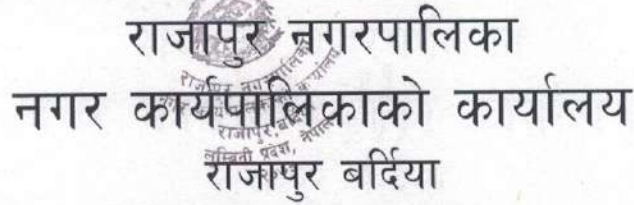 राजापुर नगरपालिका
नगर कार्यपालिकाको कार्यालय
राजापुर बर्दिया
राजापुर नगरपालिका
नगर कार्यपालिकाको कार्यालय
राजापुर, बर्दिया
लुम्बिनी प्रदेश, नेपाल